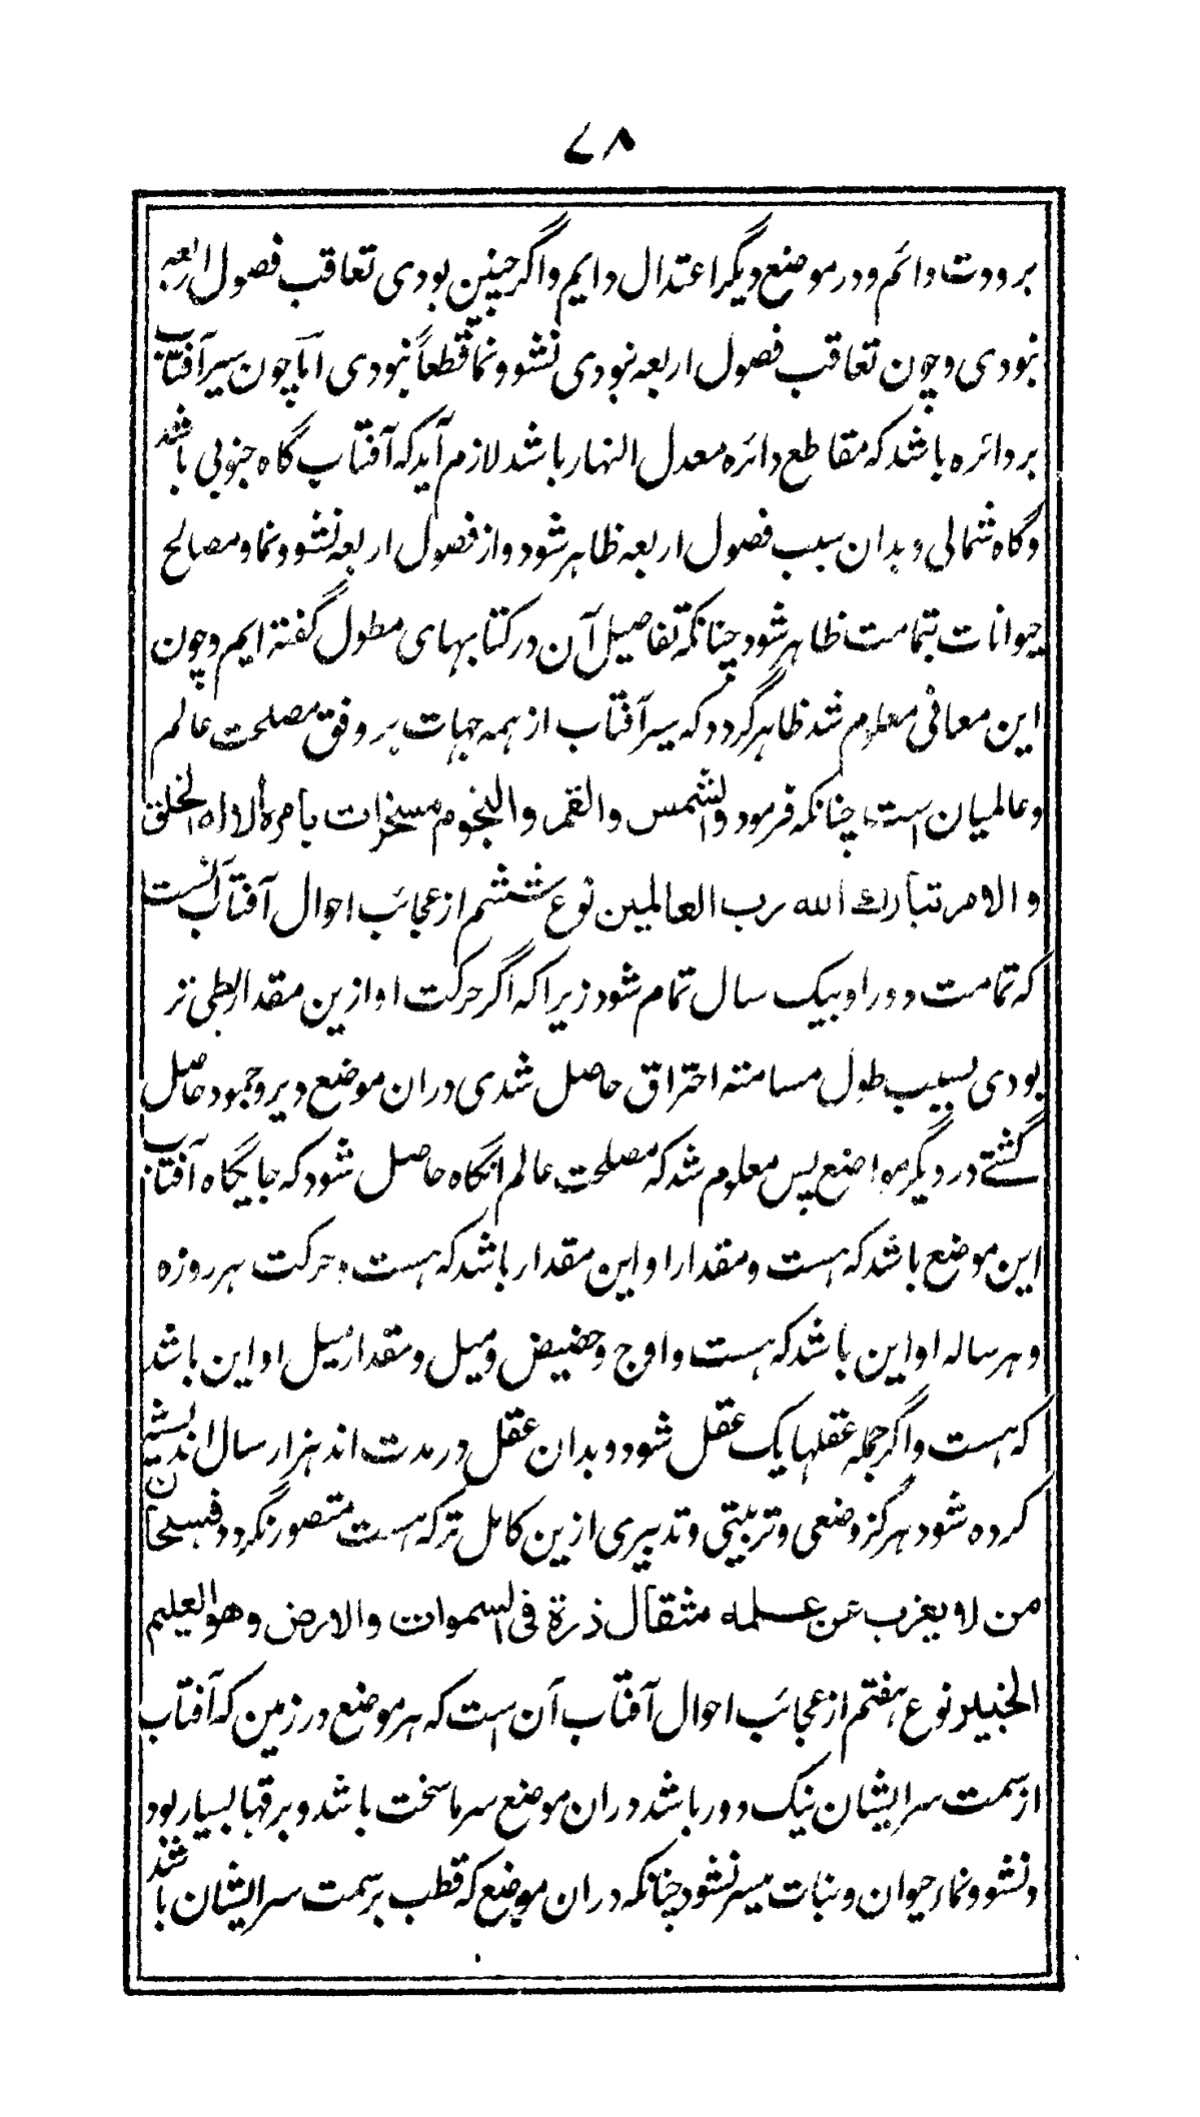 ۷۸
برودت دائم و در موضع دیگر اعتدال دایم و اگر چنین بودی تعاقب فصول اربعه
نبودی و چون تعاقب فصول اربعه نبودی نشو و نما قطعاً نبودی اما چون سیر آفتاب
بر دائره باشد که مقاطع دائره معدل النهار باشد لازم آید که آفتاب گاه جنوبی باشد
و گاه شمالی و بدان سبب فصول اربعه ظاهر شود و از فصول اربعه نشو و نما و مصالح
حیوانات بتمامت ظاهر شود چنانکه تفاصیل آن در کتابهای مطول گفته ایم و چون
این معانی معلوم شد ظاهر گردد که سیر آفتاب از همه جهات بر وفق مصلحت عالم
و عالمیان است چنانکه فرمود والشمس والقمر والنجوم مسخرات بامره ألا له الخلق
والامر تبارك الله رب العالمین نوع ششم از عجائب احوال آفتاب آنست
که تمامت دور او بیک سال تمام شود زیرا که اگر حرکت او ازین مقدار بطی تر
بودی بسبب طول مسامتة احتراق حاصل شدی دران موضع دیر و جمود حاصل
گشتے در دیگر مواضع پس معلوم شد که مصلحت عالم انگاه حاصل شود که جایگاه آفتاب
این موضع باشد که هست و مقدار او این مقدار باشد که هست و حرکت هر روزه
و هر ساله او این باشد که هست و اوج و حضیض و میل و مقدار میل او این باشد
که هست و اگر جمله عقلها یک عقل شود و بدان عقل در مدت اند هزار سال اندیشه
کرده شود هرگز وضعی و تربیتی و تدبیری ازین کامل تر که هست متصور نگردد فسبحان
من لا یعزب عن علمه مثقال ذرة فی السموات والارض وهو العلیم
الخبیر نوع هفتم از عجائب احوال آفتاب آن است که هر موضع در زمین که آفتاب
از سمت سر ایشان نیک دور باشد دران موضع سرما سخت باشد و برقها بسیار بود
و نشو و نما ر حیوان و نبات میسر نشود چنانکه دران موضع که قطب بر سمت سر ایشان باشد